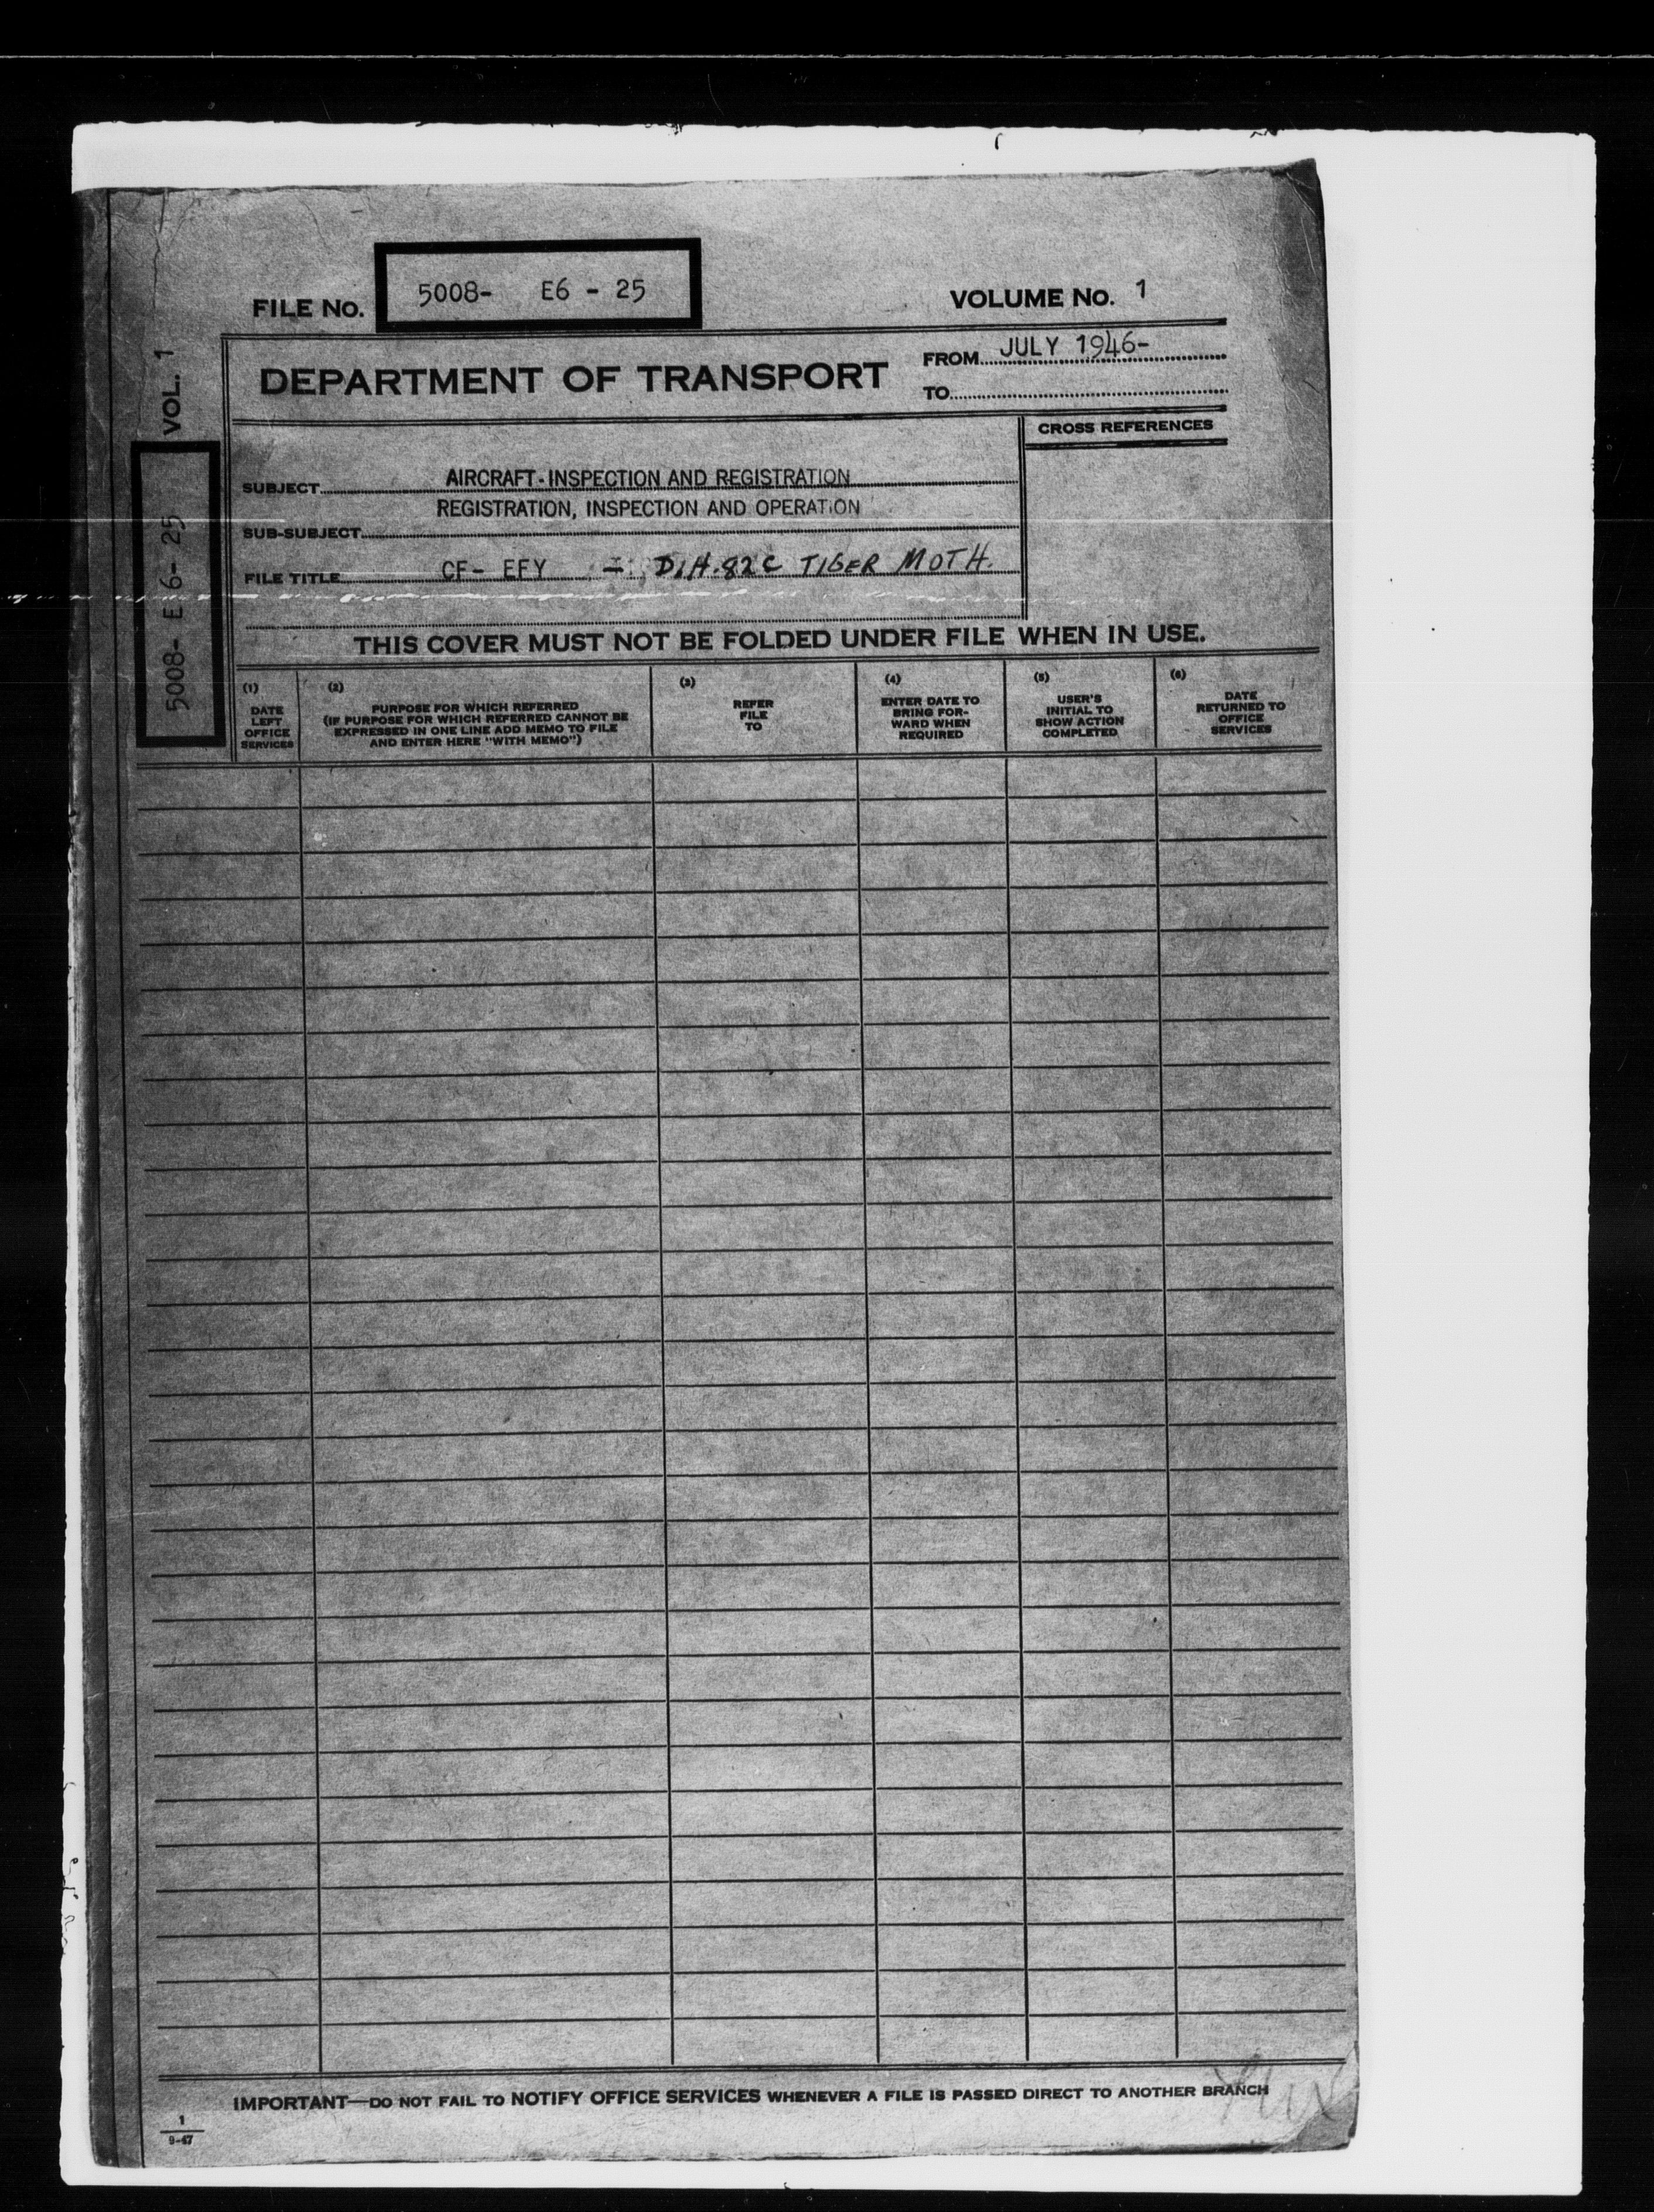 FILE NO. 5008- E6 - 25
VOLUME NO. 1
DEPARTMENT OF TRANSPORT
FROM JULY 1946-
TO
CROSS REFERENCES
SUBJECT AIRCRAFT-INSPECTION AND REGISTRATION
REGISTRATION, INSPECTION AND OPERATION
SUB-SUBJECT
FILE TITLE CF- EFY - D.H.82C TIGER MOTH.
VOL. 1
5008- E6-25
THIS COVER MUST NOT BE FOLDED UNDER FILE WHEN IN USE.
(1)
DATE
LEFT
OFFICE
SERVICES
(2)
PURPOSE FOR WHICH REFERRED
(IF PURPOSE FOR WHICH REFERRED CANNOT BE
EXPRESSED IN ONE LINE ADD MEMO TO FILE
AND ENTER HERE "WITH MEMO")
(3)
REFER
FILE
TO
(4)
ENTER DATE TO
BRING FOR-
WARD WHEN
REQUIRED
(5)
USER'S
INITIAL TO
SHOW ACTION
COMPLETED
(6)
DATE
RETURNED TO
OFFICE
SERVICES
IMPORTANT—DO NOT FAIL TO NOTIFY OFFICE SERVICES WHENEVER A FILE IS PASSED DIRECT TO ANOTHER BRANCH
1
9-47